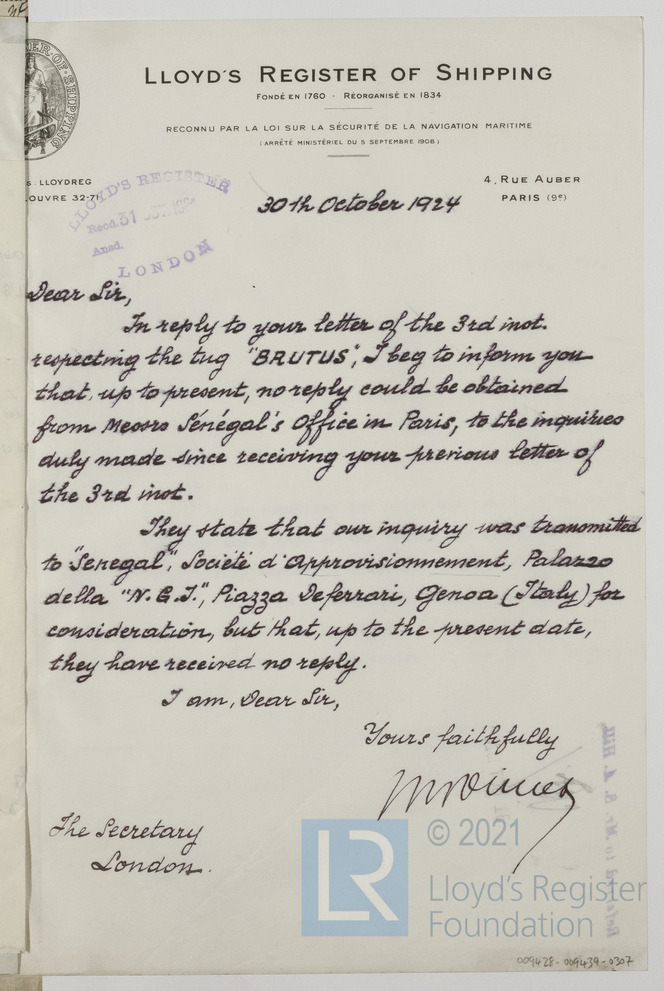 LLOYD'S REGISTER OF SHIPPING
FONDÉ EN 1760 - RÉORGANISÉ EN 1834
RECONNU PAR LA LOI SUR LA SÉCURITÉ DE LA NAVIGATION MARITIME
(ARRÊTÉ MINISTÉRIEL DU 5 SEPTEMBRE 1908)
S: LLOYDREG
OUVRE 32-71
4, RUE AUBER
PARIS (9e)
LLOYD'S REGISTER
Recd. 31
Ansd.
LONDON
30th October 1924
Dear Sir,
In reply to your letter of the 3rd inst.
respecting the tug "BRUTUS", I beg to inform you
that, up to present, no reply could be obtained
from Messrs Sénégal's Office in Paris, to the inquiries
duly made since receiving your previous letter of
the 3rd inst.
They state that our inquiry was transmitted
to "Senegal", Societé d'Approvisionnement, Palazzo
della "N.G.I.", Piazza Deferrari, Genoa (Italy) for
consideration, but that, up to the present date,
they have received no reply.
I am, Dear Sir,
Yours faithfully
The Secretary
London.
LR
© 2021
Lloyd's Register
Foundation
009428-009439-0307